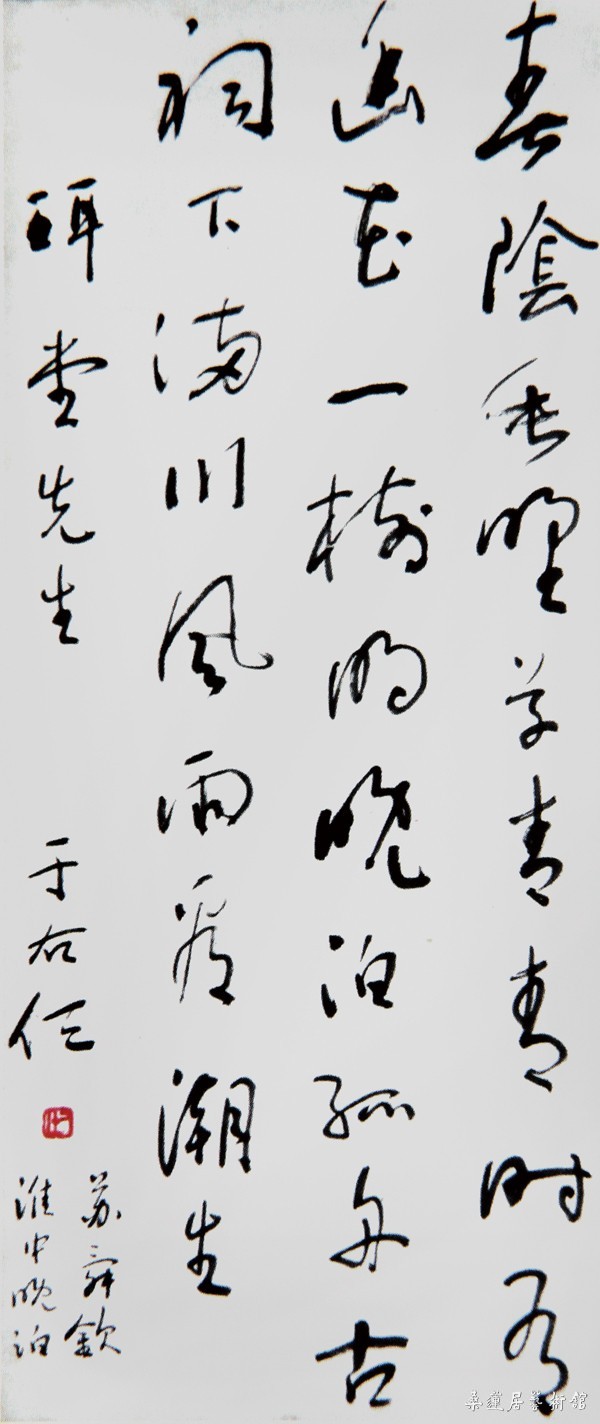 春陰垂野草青青時有
幽花一樹明晚泊孤舟古
祠下滿川風雨看潮生
珥堂先生
于右任
苏舜欽
淮中晚泊
桑蓮居藝術館